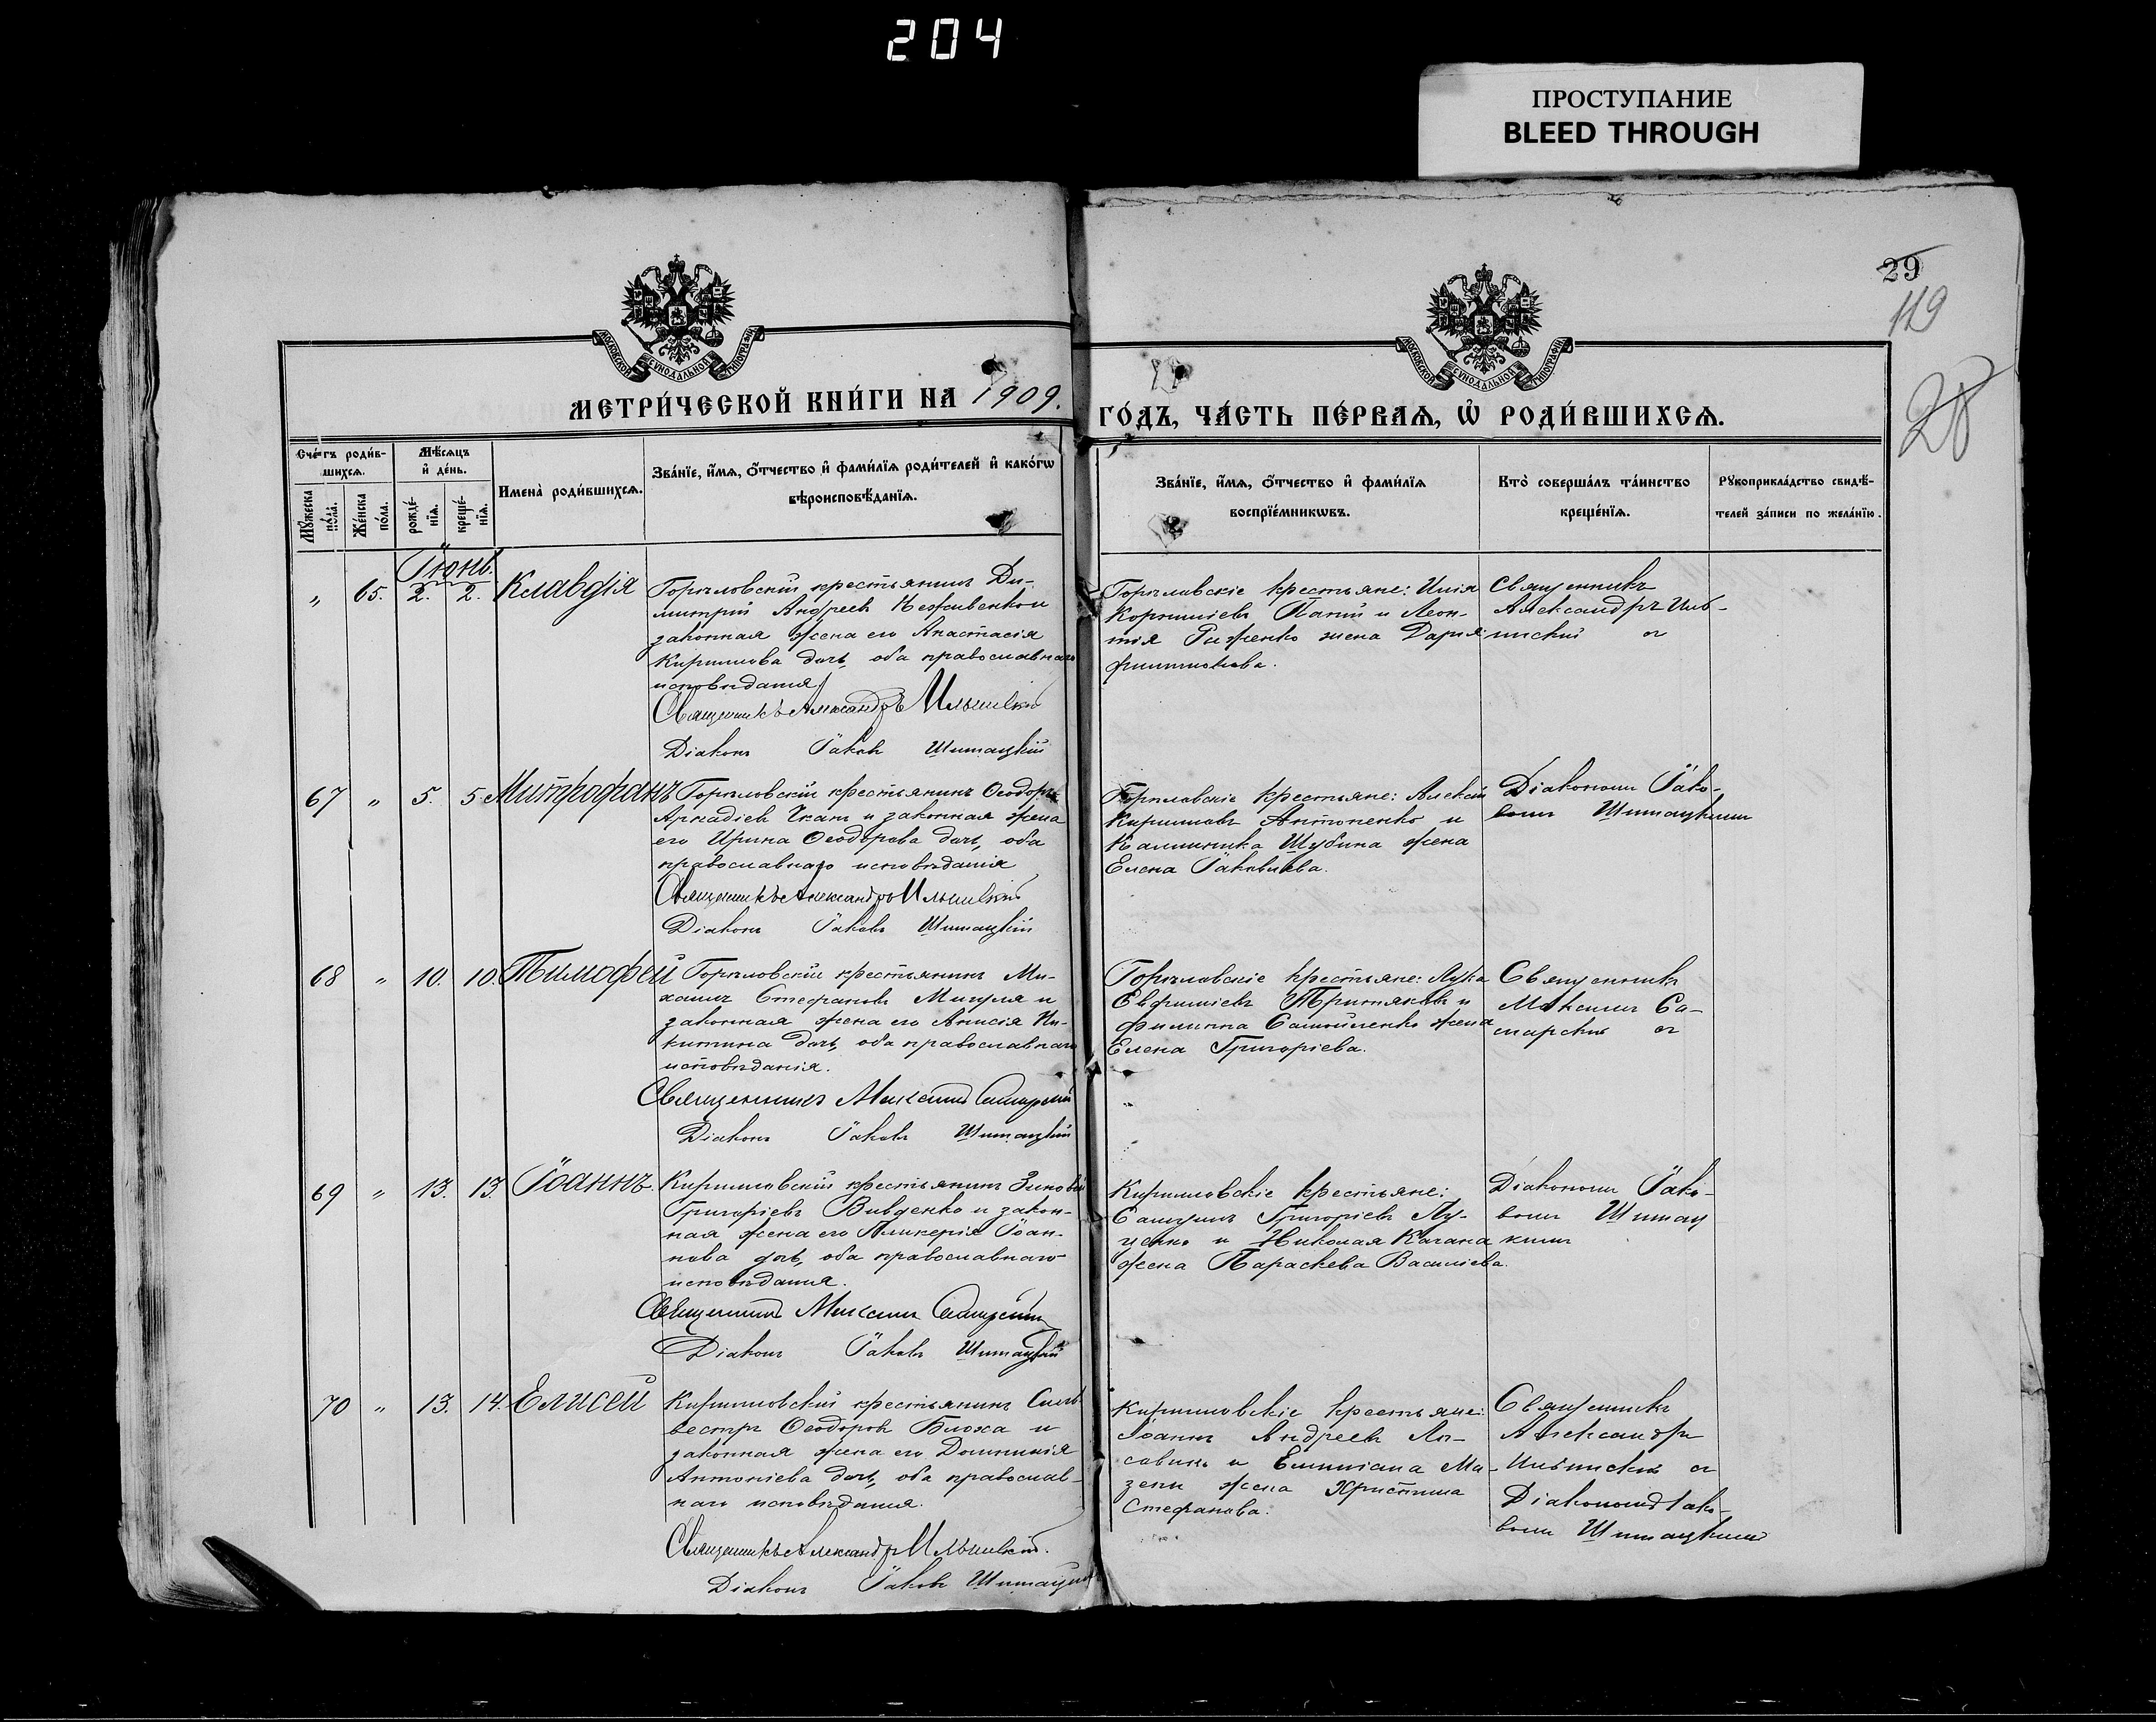 204
ПРОСТУПАНИЕ
BLEED THROUGH
29
119
28
МОСКОВСКОЙ СѴНОДАЛЬНОЙ ТИПОГРАФІИ
МОСКОВСКОЙ СѴНОДАЛЬНОЙ ТИПОГРАФІИ
МЕТРИ́ЧЕСКОЙ КНИ́ГИ НА 1909. ГО́ДЪ, ЧА́СТЬ ПЕ́РВАѦ, Ѡ҆ РОДИ́ВШИХСѦ.
Сче́тъ роди́в-
шихсѧ.
Мꙋ́жеска по́ла.
Же́нска по́ла.
Мѣ́сѧцъ
и҆ де́нь.
рожде́-
нїѧ.
креще́-
нїѧ.
Имена̀ роди́вшихсѧ.
Зва́нїе, и҆́мѧ, ѻ҆́тчество и҆ фами́лїѧ роди́телей и҆ како́гѡ
вѣроисповѣ́данїѧ.
Зва́нїе, и҆́мѧ, ѻ҆́тчество и҆ фами́лїѧ
воспрїе́мникѡвъ.
Кто̀ соверша́лъ та́инство
креще́нїѧ.
Рꙋкоприкла́дство свидѣ́-
телей за́писи по жела́нїю.
Іюнь.
„ 65. 2. 2. Клавдія
Горѣловскій крестьянинъ Ди-
митрій Андреевъ Неживенко и
законная жена его Анастасія
Кириллова дочь, оба православнаго
исповѣданія.
Священникъ Александръ Ильинскій
Діаконъ Іаковъ Шитацкій
Горѣловскіе крестьяне: Илія
Корниліевъ Папій и Леон-
тія Рыженко жена Дарія
Филимонова.
Священникъ
Александръ Иль-
инскій съ
67 „ 5. 5. Митрофанъ
Горѣловскій крестьянинъ Ѳеодоръ
Аркадіевъ Чканъ и законная жена
его Ирина Ѳеодорова дочь, оба
православнаго исповѣданія
Священникъ Александръ Ильинскій
Діаконъ Іаковъ Шитацкій
Горѣловскіе крестьяне: Алексій
Кирилловъ Антоненко и
Каллиника Шубина жена
Елена Іаковлева.
Діакономъ Іако-
вомъ Шитацкимъ
68 „ 10. 10. Тимофей
Горѣловскій крестьянинъ Ми-
хаилъ Стефановъ Мигуля и
законная жена его Анисія Ни-
китина дочь, оба православнаго
исповѣданія.
Священникъ Максимъ Самарскій
Діаконъ Іаковъ Шитацкій
Горѣловскіе крестьяне: Лука
Евфиміевъ Третьяковъ и
Филиппа Самойленко жена
Елена Григоріева.
Священникъ
Максимъ Са-
марскій съ
69 „ 13. 13. Іоаннъ.
Кирилловскій крестьянинъ Зиновій
Григоріевъ Вивденко и закон-
ная жена его Гликерія Іоан-
нова дочь, оба православнаго
исповѣданія.
Священникъ Максимъ Самарскій
Діаконъ Іаковъ Шитацкій
Кирилловскіе крестьяне:
Самуилъ Григоріевъ Лу-
ценко и Николая Качана
жена Параскева Василіева.
Діакономъ Іако-
вомъ Шитац
кимъ
70 „ 13. 14. Елисей
Кирилловскій крестьянинъ Силь-
вестръ Ѳеодоровъ Блоха и
законная жена его Домникія
Антоніева дочь, оба православ-
наго исповѣданія.
Священникъ Александръ Ильинскій.
Діаконъ Іаковъ Шитацкій
Кирилловскіе крестьяне:
Іоаннъ Андреевъ Ло-
совикъ и Емиліана Ма-
зепы жена Христина
Стефанова.
Священникъ
Александръ
Ильинскій съ
Діакономъ Іако-
вомъ Шитацкимъ